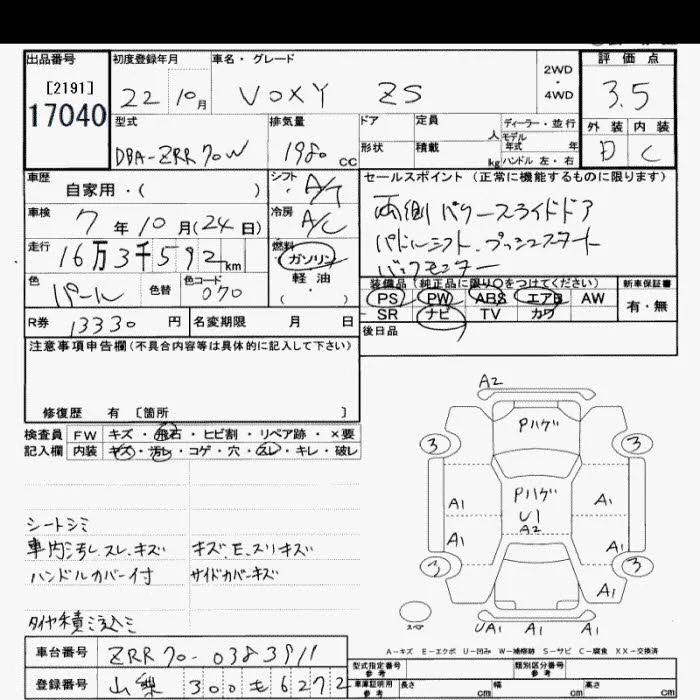 出品番号 初度登録年月 車名・グレード 評価点
[2191] 2WD・4WD
17040 22 10月 VOXY ZS 3.5
型式 排気量 ドア 定員 人 ディーラー・並行 外装 内装
DBA-ZRR70W 1980cc 形状 積載 kg モデル年式 年 ハンドル 左・右 D C
車歴 自家用・( ) シフト A/T セールスポイント (正常に機能するものに限ります)
車検 7年10月(24日) 冷房 A/C 両側パワースライドドア
走行 16万3千592km 燃料 ガソリン パドルシフト プッシュスタート
色 パール 色替 色コード 070 軽油 (・) バックモニター
装備品(純正品に限り○をつけてください) 新車保証書
PS PW ABS エアB AW 有・無
R券 13330円 名変期限 月 日 SR ナビ TV カワ
注意事項申告欄(不具合内容等は具体的に記入して下さい) 後日品
修復歴 有 [箇所 ]
検査員 FW キズ・飛石・ヒビ割・リペア跡・×要
記入欄 内装 キズ・汚レ・コゲ・穴・スレ・キレ・破レ
A2
Pハゲ
3 3
A1 Pハゲ A1
U1
A2
A1 A1
3 3
A1
シートシミ
車内汚レ、スレ、キズ キズ、E、スリキズ
ハンドルカバー付 サイドカバーキズ
タイヤ積ミ込ミ
スペア UA1 A1 A1
A-キズ E-エクボ U-凹み W-補修跡 S-サビ C-腐食 XX-交換済
車台番号 ZRR70-0383911 型式指定番号 参考 類別区分番号 参考
登録番号 山梨 300 も 6272 車庫証明用 参考 長さ cm 幅 cm 高さ cm